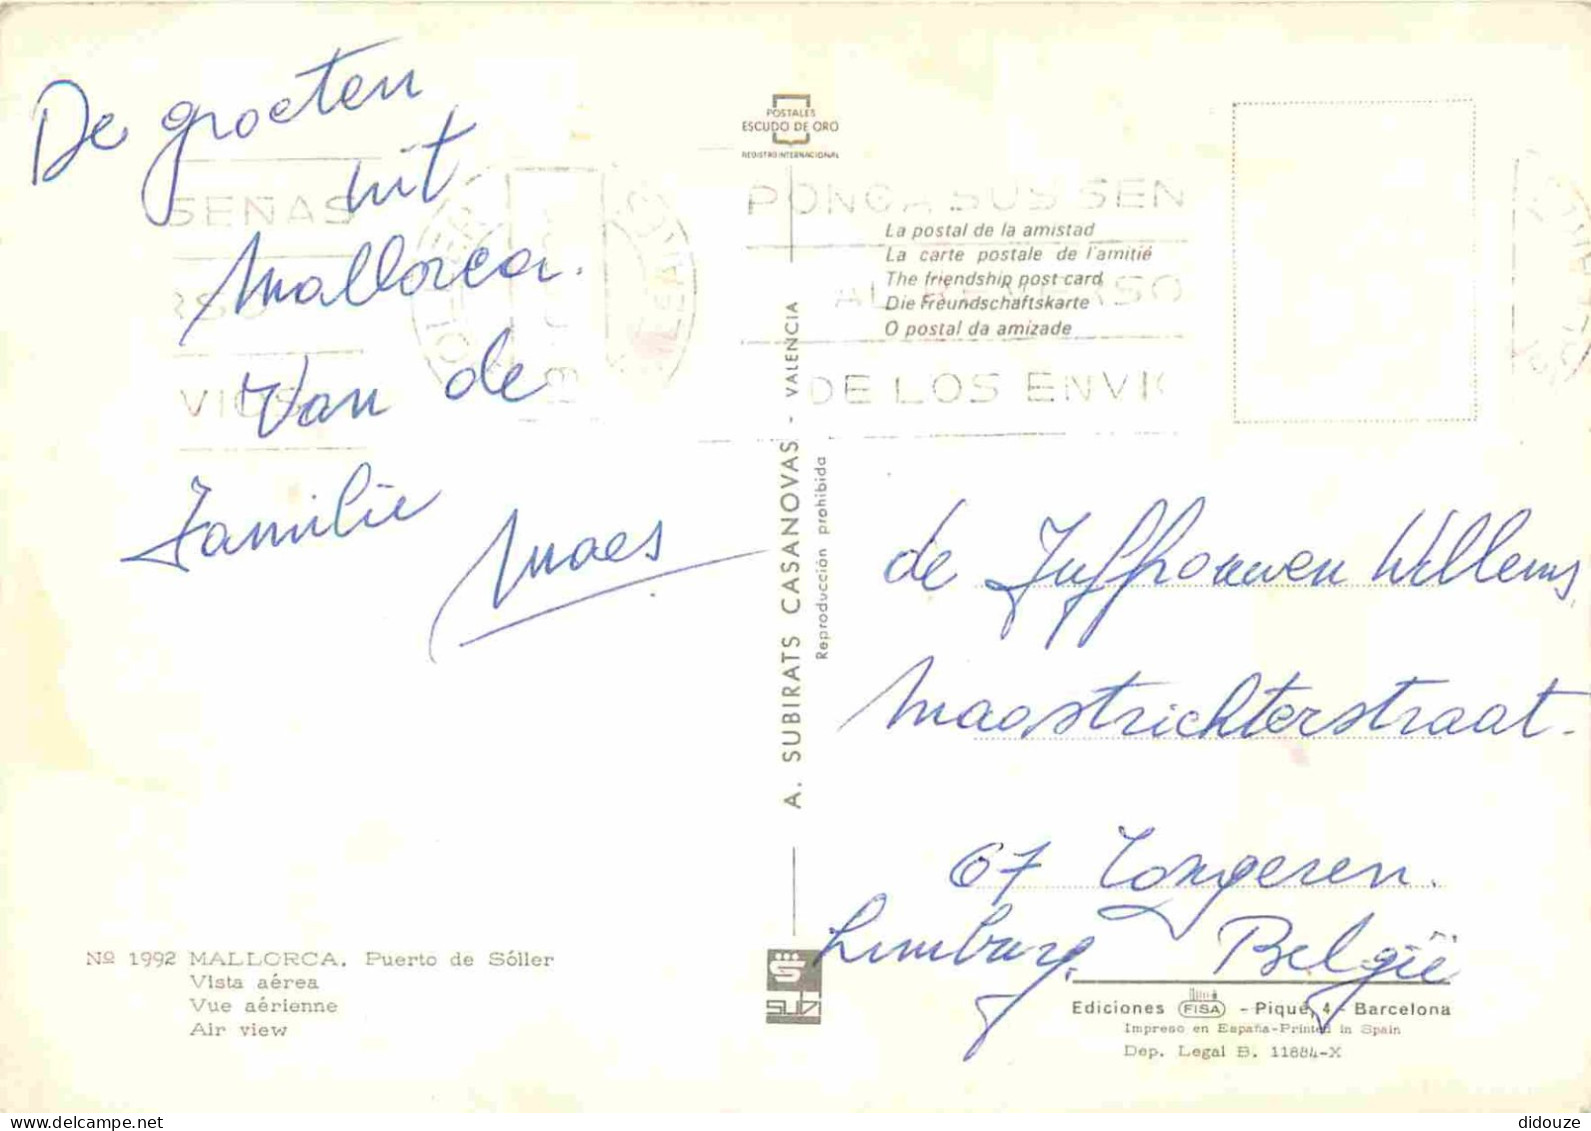 De groeten
uit
Mallorca.
Van de
Familie
Maes
Nº 1992 MALLORCA. Puerto de Sóller
Vista aérea
Vue aérienne
Air view
POSTALES
ESCUDO DE ORO
REGISTRO INTERNACIONAL
SEÑAS
RSO
VIOS
PONGA SUS SEÑ
AL REVERSO
DE LOS ENVIO
La postal de la amistad
La carte postale de l'amitié
The friendship post card
Die Freundschaftskarte
O postal da amizade
A. SUBIRATS CASANOVAS - VALENCIA
Reproducción prohibida
de Juffrouwen Willems
Maastrichterstraat.
67 Tongeren.
Limburg. België
SUBI
Ediciones FISA - Piqué, 4 - Barcelona
Impreso en España-Printed in Spain
Dep. Legal B. 11884-X
didouze